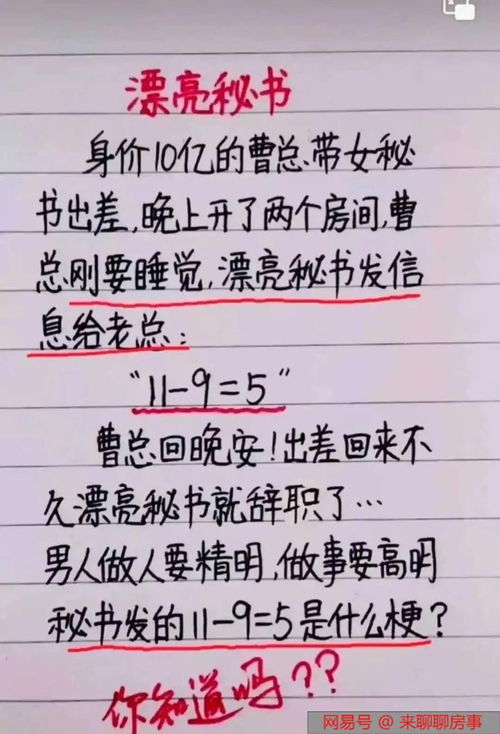 漂亮秘书
身价10亿的曹总带女秘
书出差,晚上开了两个房间,曹
总刚要睡觉,漂亮秘书发信
息给老总:
"11-9=5"
曹总回晚安!出差回来不
久漂亮秘书就辞职了…
男人做人要精明,做事要高明
秘书发的11-9=5是什么梗?
你知道吗??
网易号 @ 来聊聊房事